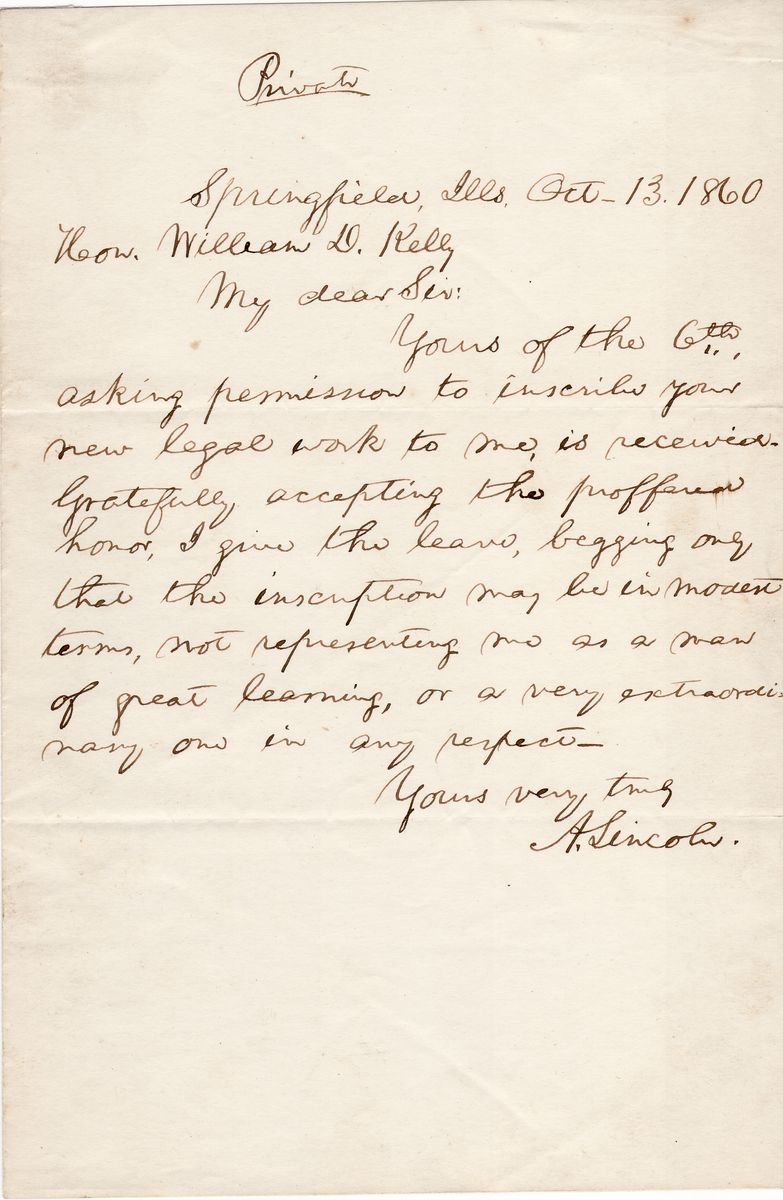 Private
Springfield, Ills. Oct- 13. 1860
Hon. William D. Kelly
My dear Sir:
Yours of the 6th.,
asking permission to inscribe your
new legal work to me, is received-
Gratefully accepting the proffered
honor, I give the leave, begging only
that the inscription may be in modest
terms, not representing me as a man
of great learning, or a very extraordi-
nary one in any respect-
Yours very truly
A. Lincoln.